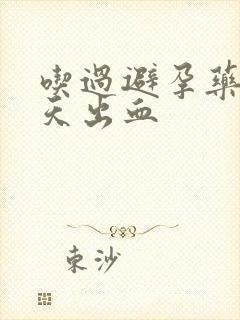 喫過避孕藥
天出血
東沙